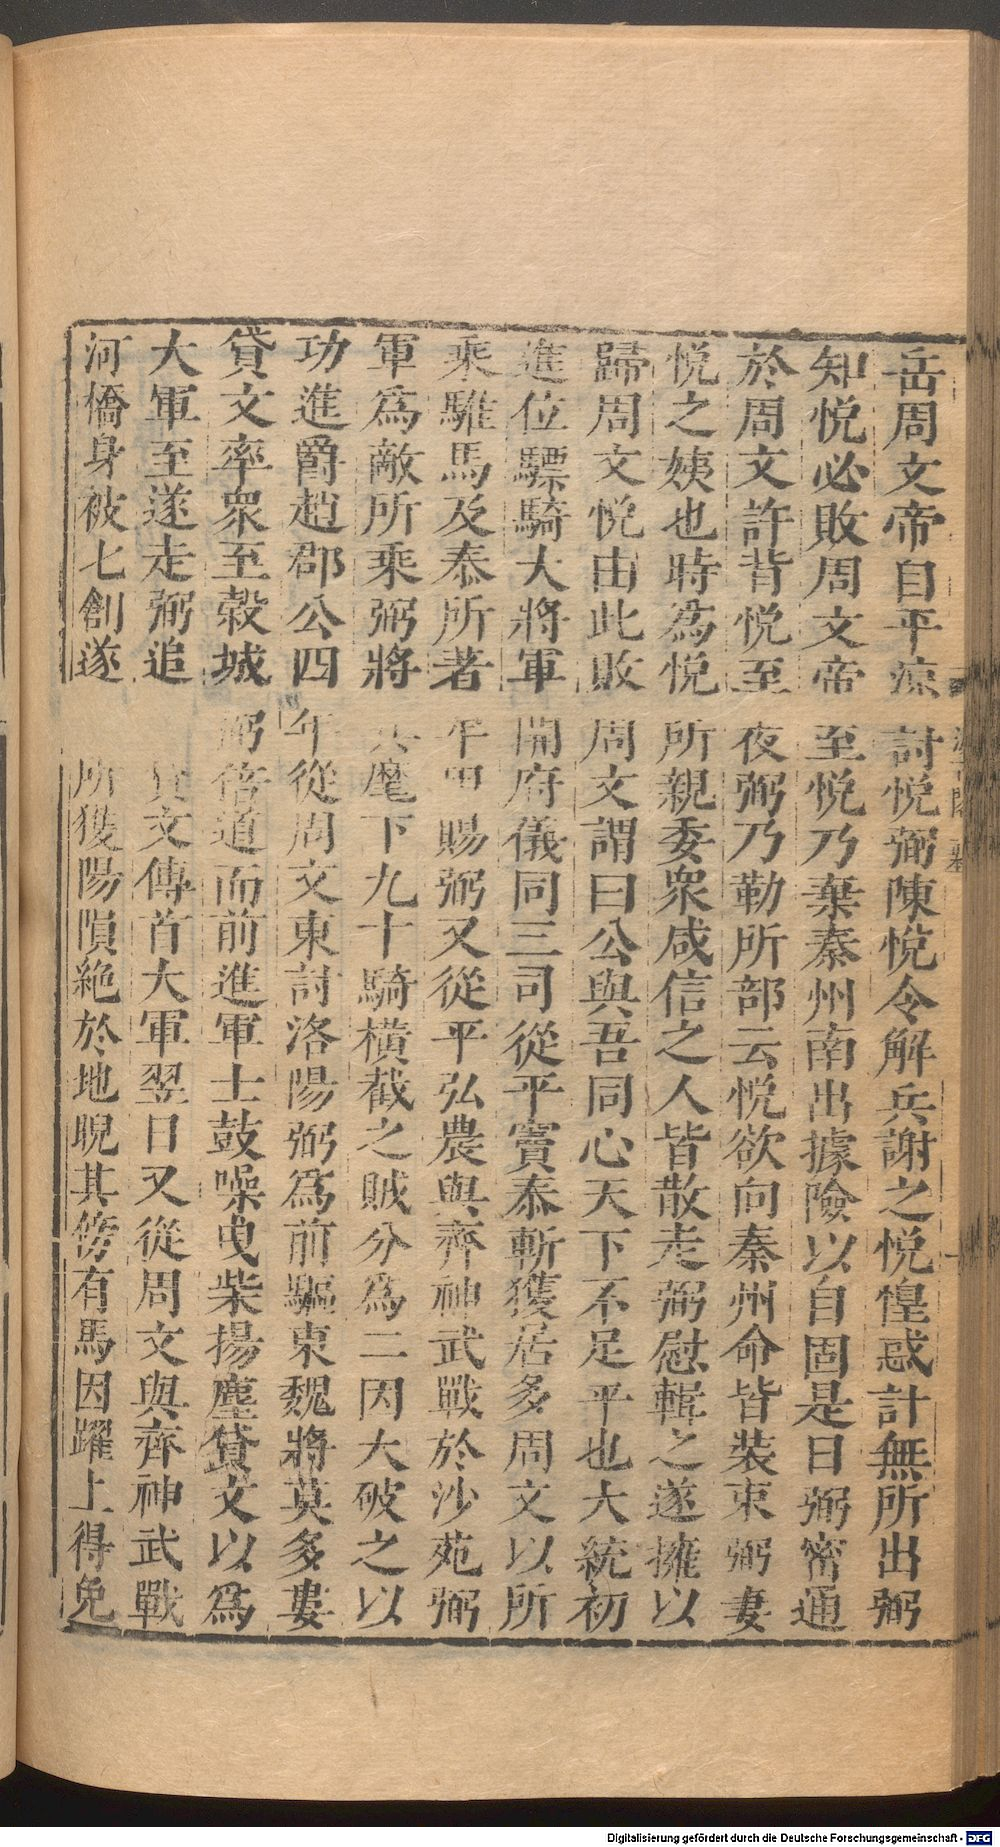 岳周文帝自平涼討悦弼陳悦令解兵謝之悦惶惑計無所出弼
知悦必敗周文帝至悦乃棄秦州南出據險以自固是日弼密通
於周文許背悦至夜弼乃勒所部云悦欲向秦州命皆装束弼妻
悦之姨也時為悦所親委衆咸信之人皆散走弼慰輯之遂擁以
歸周文悦由此敗周文謂曰公與吾同心天下不足平也大統初
進位驃騎大將軍開府儀同三司從平竇泰斬獲居多周文以所
乘騅馬及泰所著牟甲賜弼又從平弘農與齊神武戰於沙苑弼
軍爲敵所乘弼將其麾下九十騎橫截之賊分為二因大破之以
功進爵趙郡公四年從周文東討洛陽弼爲前驅東魏將莫多婁
貸文率衆至穀城弼倍道而前進軍士鼓噪曳柴揚塵貸文以爲
大軍至遂走弼追文傳首大軍翌日又從周文與齊神武戰
河橋身被七創遂所獲陽隕絶於地睨其傍有馬因躍上得免
Digitalisierung gefördert durch die Deutsche Forschungsgemeinschaft - DFG